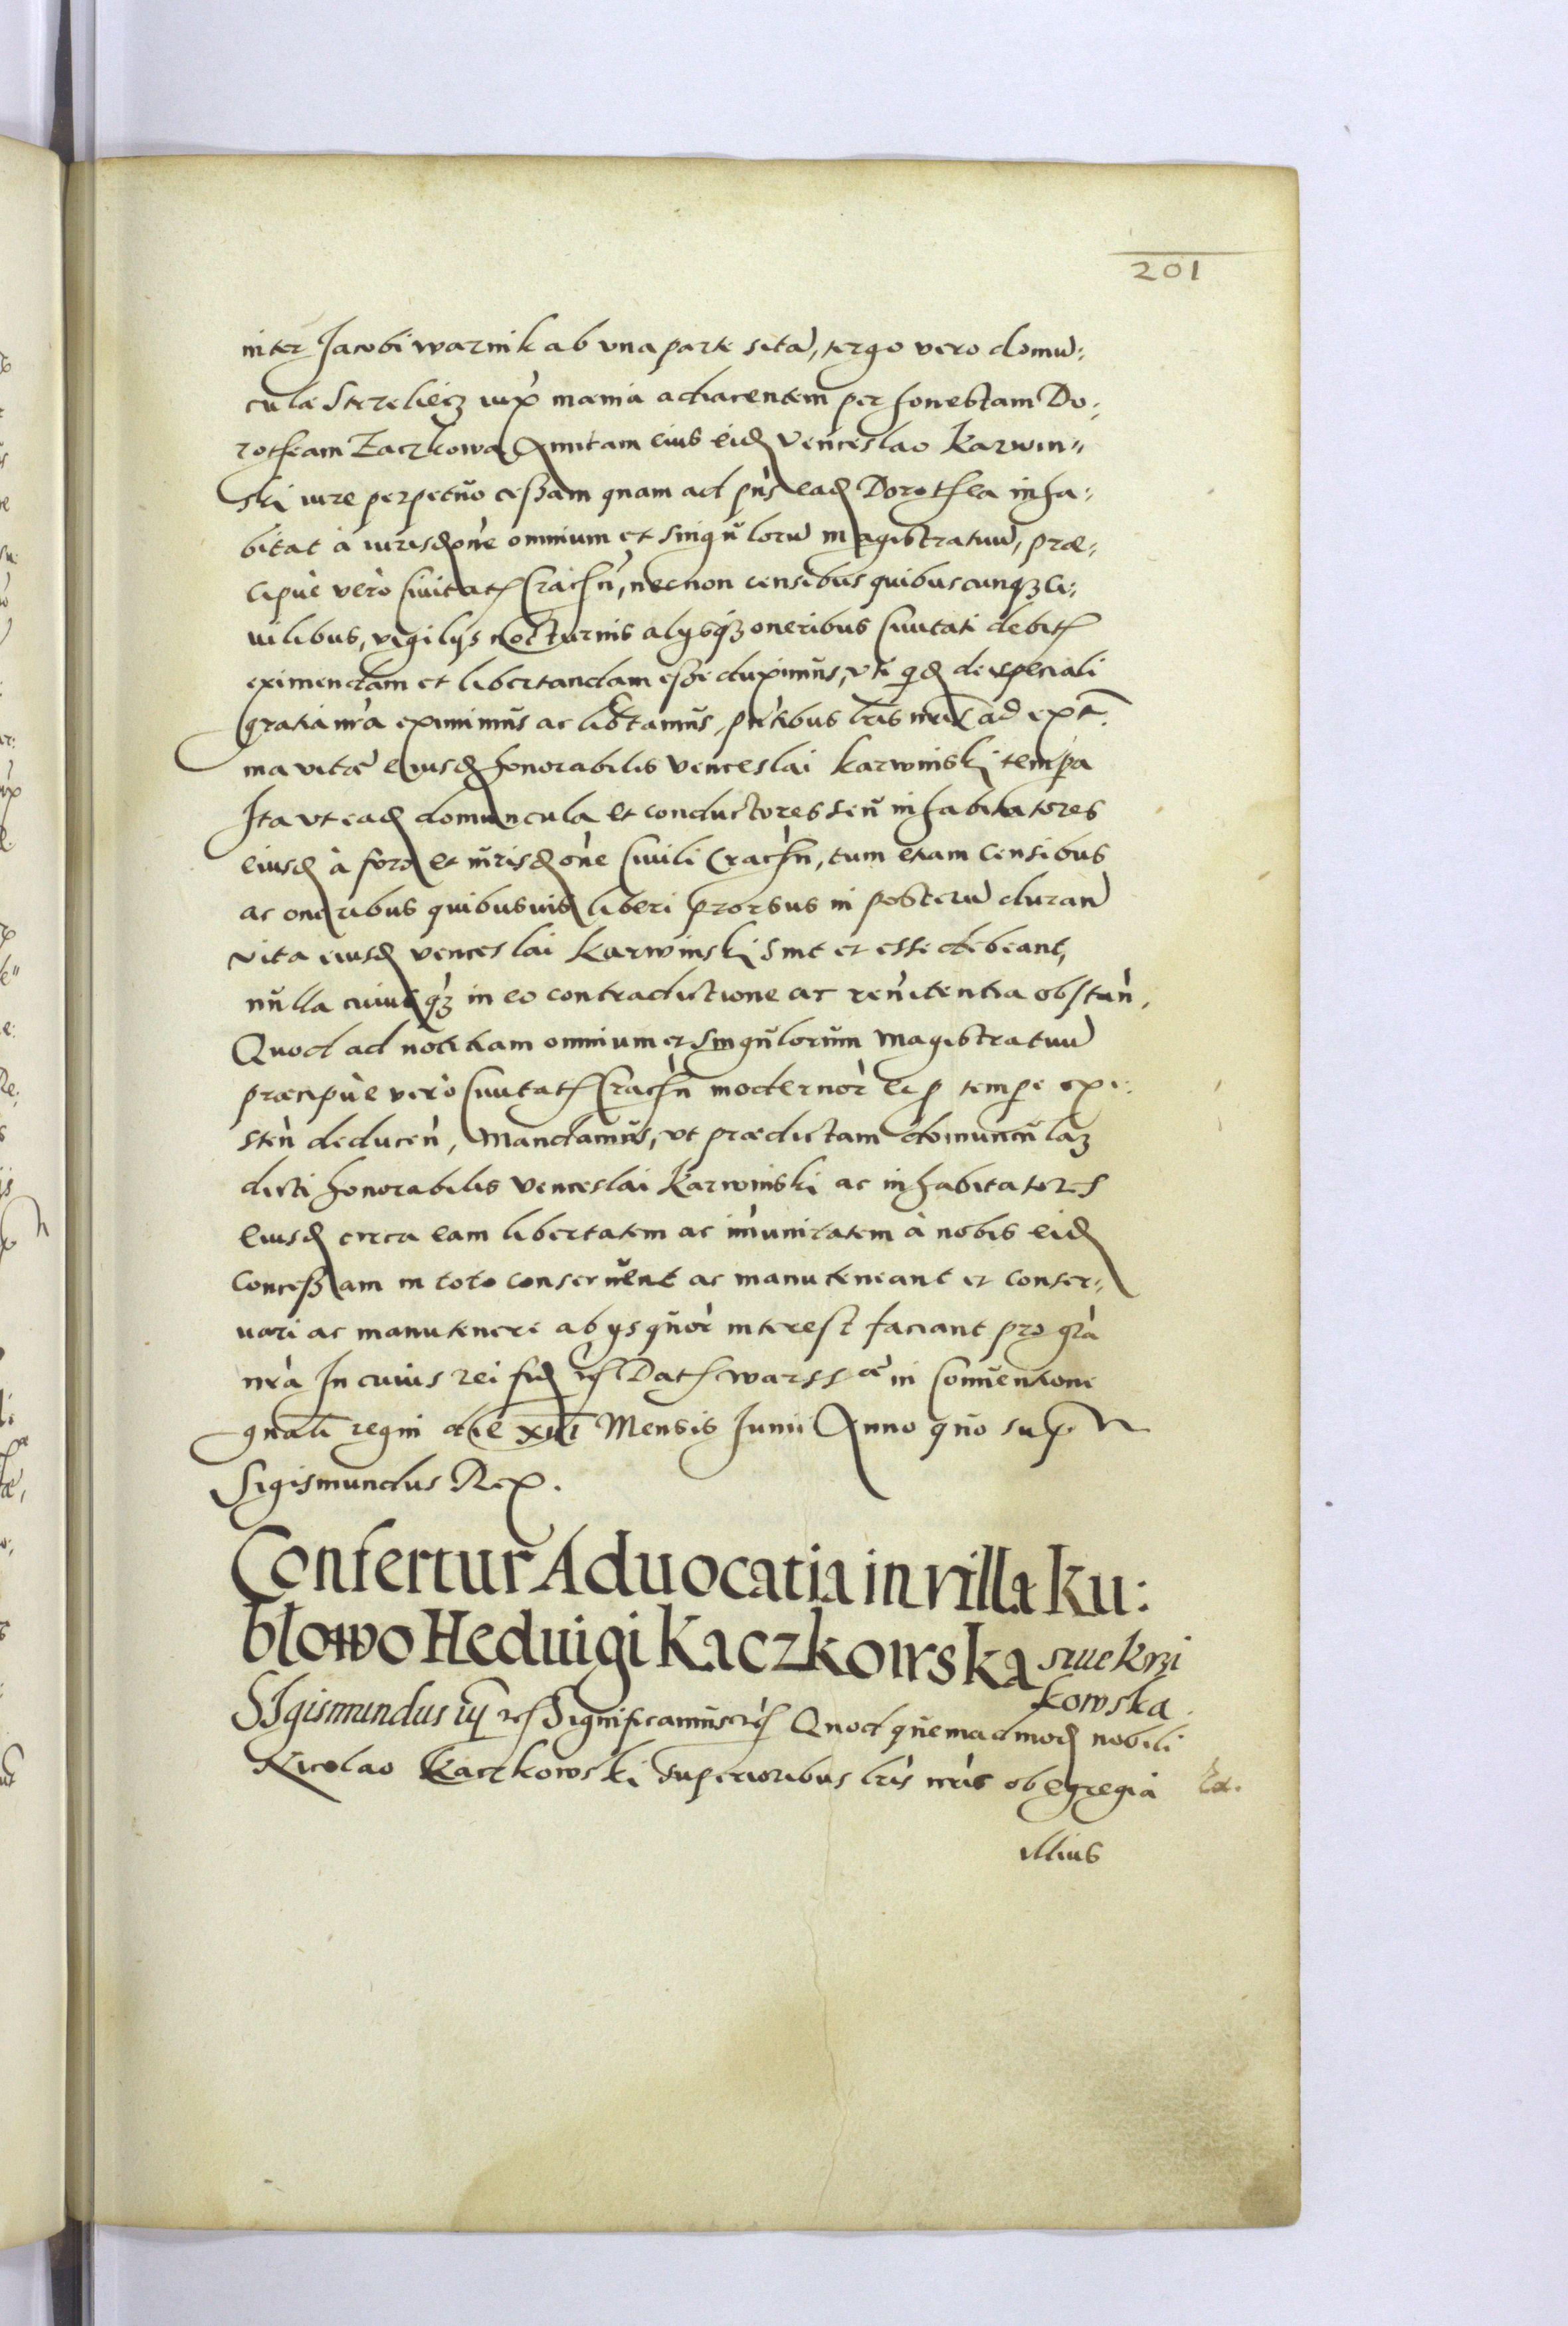 201
inter Jacobi warnik ab vna parte sitā, tergo vero domu:
culæ Strzeliecz iuxͣ mœnia adiacentem per honestam Do:
rotheam Zaczkowa Amitam eius eidē Venceslao Karwin:
ski iure perpetuo ceßam quam ad pn̄s eadē Dorothea inha:
bitat à iurisdone omnium et singulorū magistratuū, præ:
cipuè verò Ciuitatis Crach̄n, necnon censibus quibuscunqꝫ ci:
uilibus, vigilijs nocturnis alijsqꝫ oneribus Ciuitati debitis
eximendam et libertandam eße duximus, vti qd̄ de speciali
gratia nr̄a eximimus ac lib̄tamus, pn̄tibus lr̄is nr̄is ad extͬ:
ma vitæ eiusdē honorabilis Venceslai Karwinski tempa
Ita vt eadē domuncula et conductores seu inhabitatores
eiusdē à foro et iurisdone Ciuili Crach̄n, tum etiam Censibus
ac oneribus quibusuis liberi prorsus in posterū duran̄
vita eiusdē Venceslai Karwinski sint et esse debeant,
nulla cuiusqꝫ in eo contradictione ac renitentia obstan̄.
Quod ad notitiam omnium et singulorum Magistratuū
præcipuè verò Ciuitatis Crach̄n modernor̄ et p tempe exi:
sten̄ deducen̄, Mandamus, vt prædictam domunculaꝫ
dicti honorabilis Venceslai Karwinski ac inhabitatores
eiusdē circa eam libertatem ac im̄unitatem à nobis eidē
Conceßam in toto conseruent ac manuteneant et conser:
uari ac manuteneri ab ijs quor̄ interest faciant pro gr̄a
nr̄a In cuius rei fidē etc Datis Warssæ in Conuentione
gn̄ali regni die XIII Mensis Junii Anno quo sup̄
Sigismundus Rex.
Confertur Aduocatia in villa Ku:
blowo Heduigi Kaczkowska
kowska
SIgismundus iij etc Significamus etc Quod quemadmodū nobili
Nicolao Kaczkowski superioribus lr̄is nr̄is ob egregiā
illius